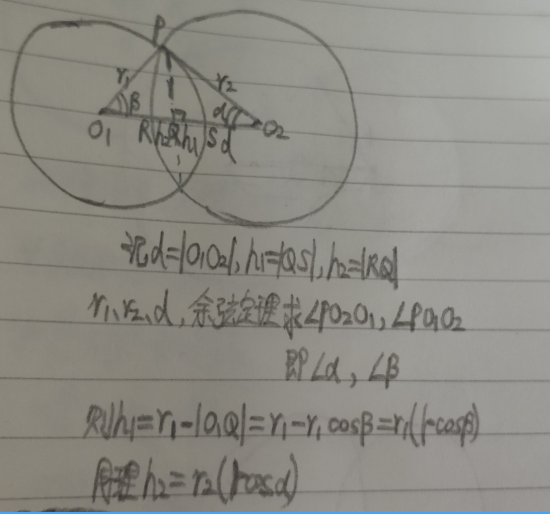 P
r₁ r₂
β α
O₁ R h₂ Q h₁ S d O₂
记d=|O₁O₂|, h₁=|QS|, h₂=|RQ|
r₁、r₂、d, 余弦定理求∠PO₂O₁, ∠PO₁O₂
即∠α, ∠β
则h₁=r₁-|O₁Q|=r₁-r₁cosβ=r₁(1-cosβ)
同理h₂=r₂(1-cosα)